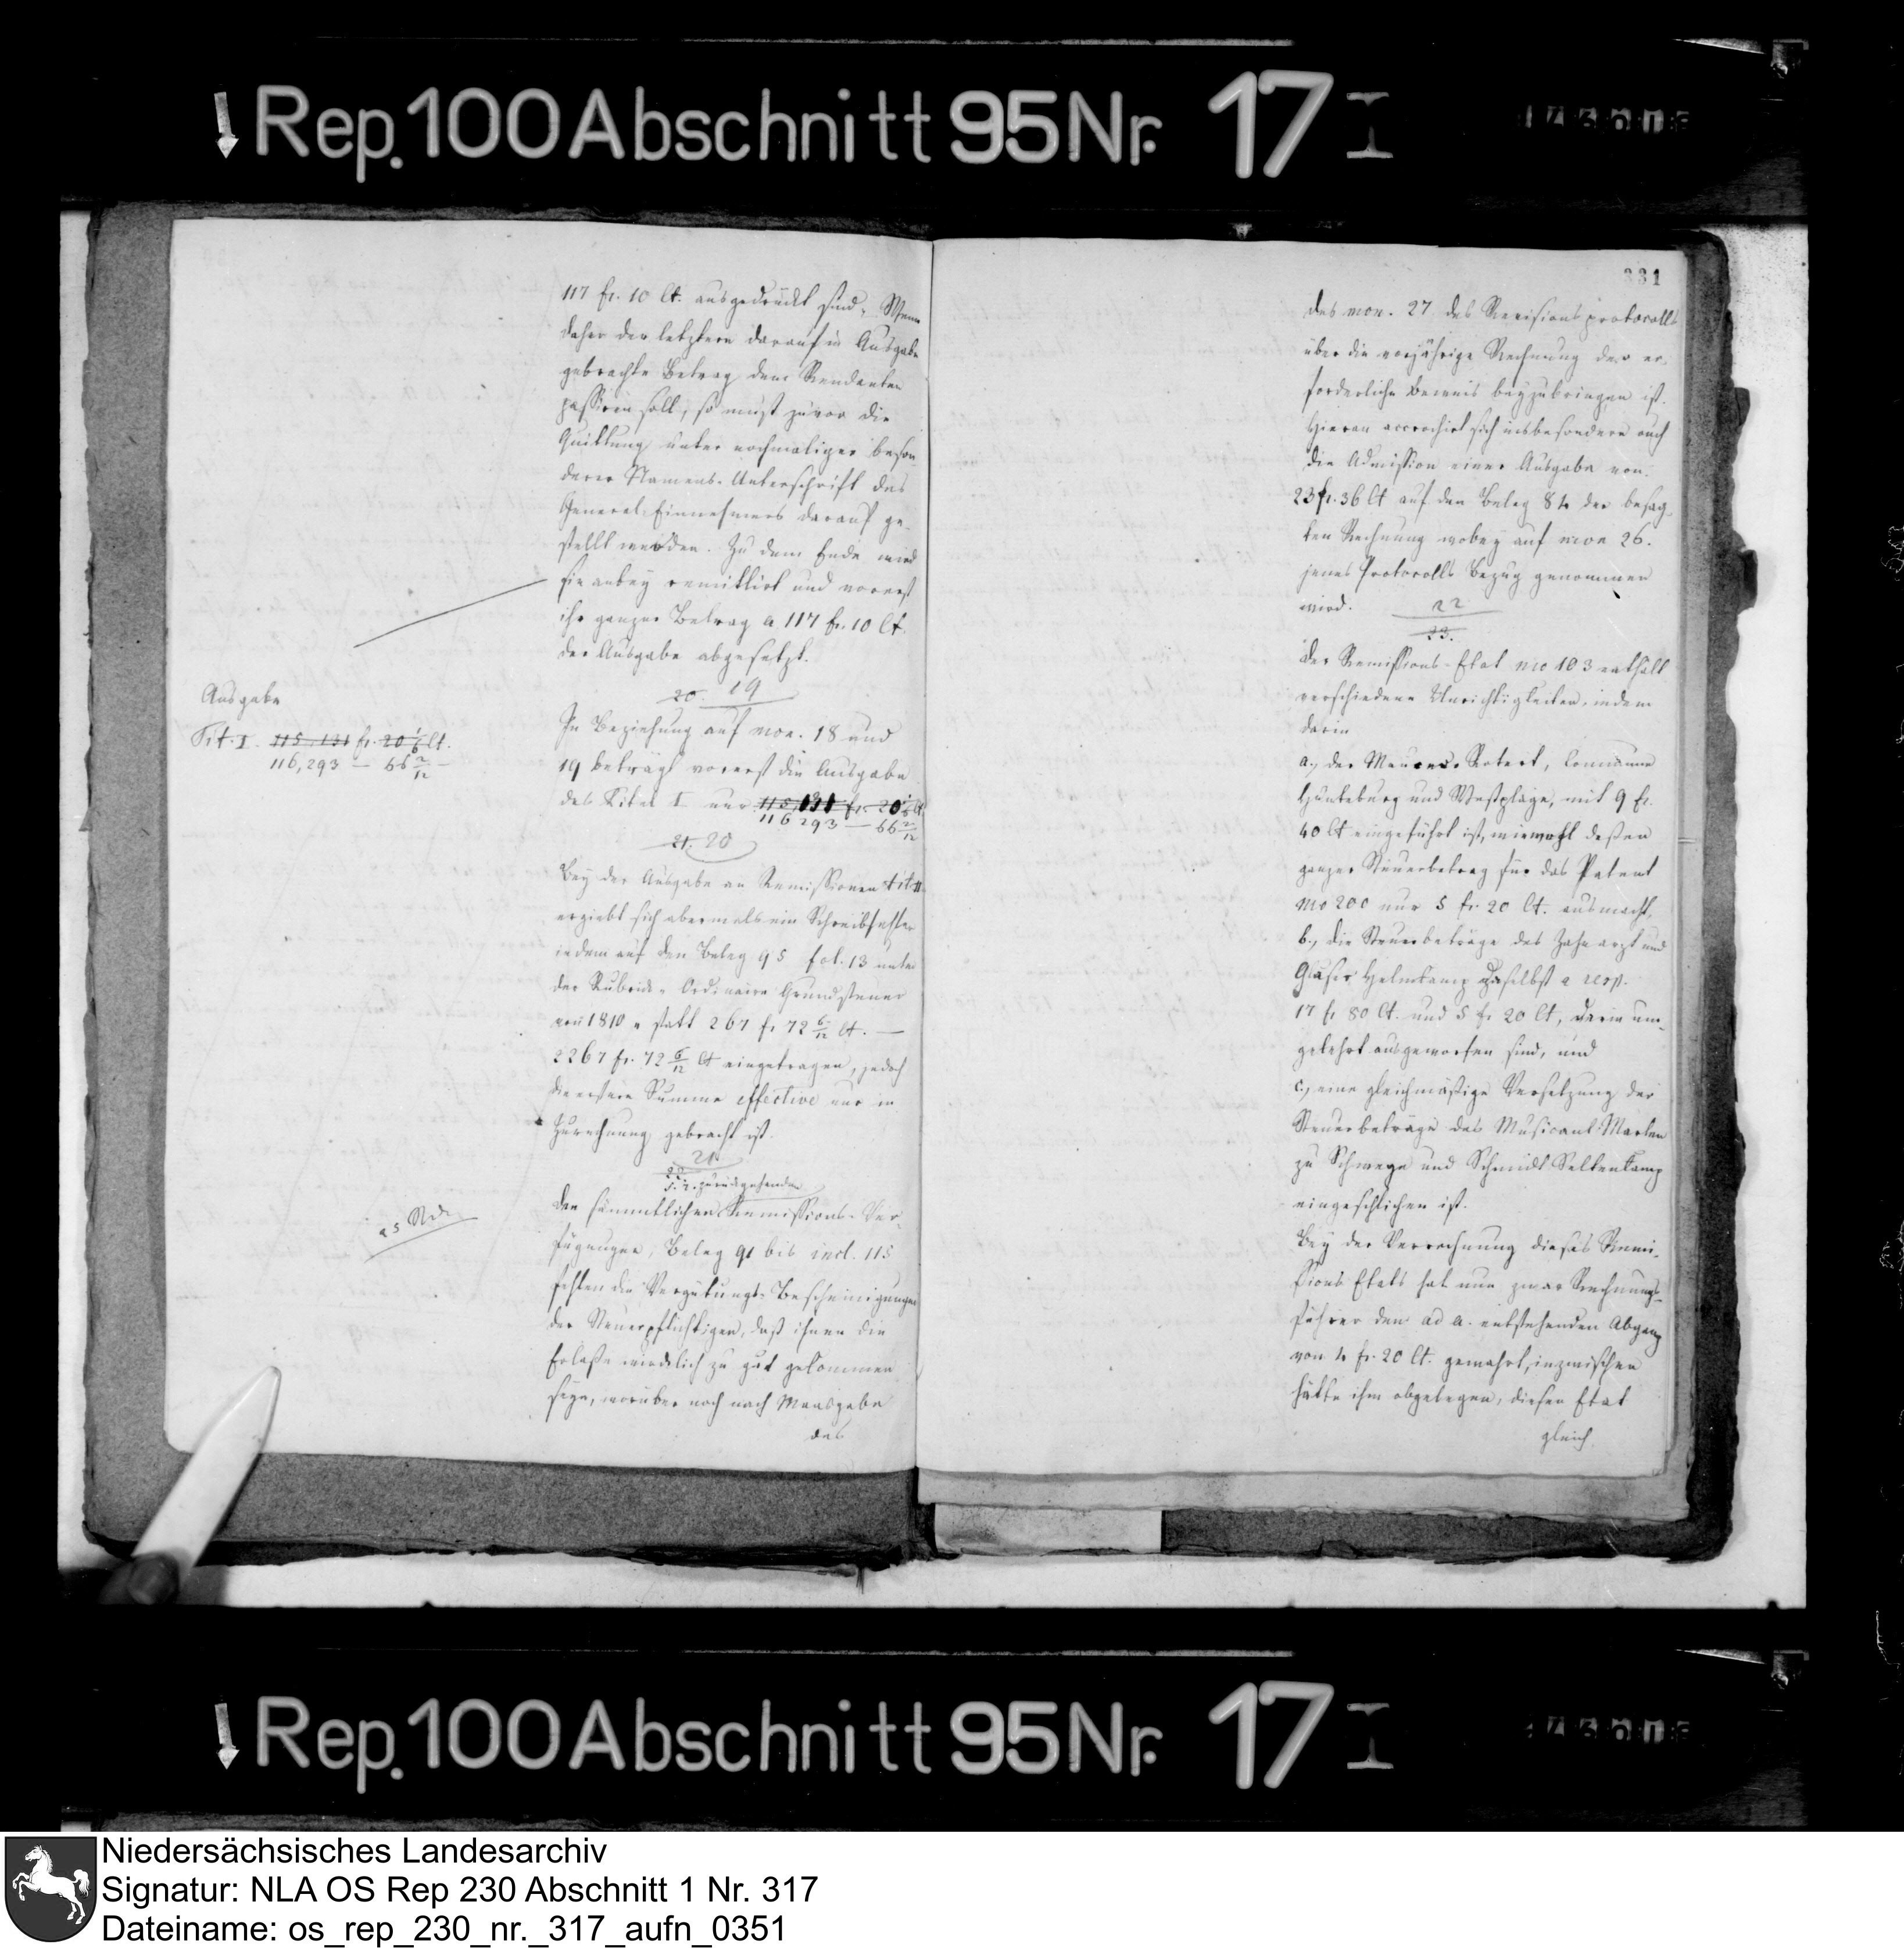 Rep. 100 Abschnitt 95 Nr. 17 I
117 fr. 10 Ct. ausgedrückt sind. Wenn
daher der letztere darauf in Ausgabe
gebrachte Betrag dem Rendanten
passiren soll, so muß zuvor die
Quittung unter nochmaliger beson
derer Namens-Unterschrift des
General-Einnehmers darauf ge-
stellt werden. Zu dem Ende wird
sie anbey remittirt und vorerst
ihr ganzer Betrag a 117 fr. 10 Ct.
der Ausgabe abgesetzt.
20. 19
Ausgabe
Tit. I. 115,131 fr. 20 Ct.
116,293 — 66 2/12 —
In Beziehung auf mon. 18 und
19 beträgt vorerst die Ausgabe
des Titel I nur 115,131 fr. 20 Ct.
116 293 — 66 2/12
21. 20
Bey der Ausgabe an Remissionen tit II
ergiebt sich abermals ein Schreibfehler
indem auf den Beleg 95 fol. 13 unter
der Rubrick „Ordinaire Grundsteuer
von 1810 „ statt 267 fr 72 6/12 Ct. —
2267 fr. 72 6/12 Ct eingetragen, jedoch
die erstere Summe effective nur in
Zurechnung gebracht ist.
21
22
zurückgehenden
Den sämmtlichen Remissions-Ver-
fügungen, Beleg 91 bis incl. 115
fehlen die Vergütungs-Bescheinigungen
der Steuerpflichtigen, daß ihnen die
Erlaße wirklich zu gut gekommen
seyn, worüber noch nach Maasgabe
des
25
331
des mon. 27 des Revisionsprotocolls
über die vorjährige Rechnung der er-
forderliche Beweis beyzubringen ist.
Hieran accrochirt sich insbesondere auch
die Admission einer Ausgabe von
23 fr. 36 Ct auf den Beleg 84 der besag-
ten Rechnung wobey auf mon 26.
jenes Protocolls Bezug genommen
wird.
22
23.
Der Remissions-Etat no 103 enthält
verschiedene Unrichtigkeiten, indem
darin
a., der Robert, Commune
Hunteburg und Westplage, mit 9 fr.
40 Ct eingeführt ist, wiewohl deßen
ganzer Steuerbetrag für das Patent
no 200 nur 5 fr. 20 Ct. ausmacht,
b., die Steuerbeträge des Zahnarzt und
Glaser Helmkamp daselbst a resp.
17 fr 80 Ct. und 5 fr 20 Ct, darin um-
gekehrt ausgeworfen sind, und
c., eine gleichmäßige Versetzung der
Steuerbeträge des Musicant Marten
zu Schwege und Schmidt Seltenkamp
eingeschlichen ist.
Bey der Verrechnung dieses Remi-
ssions Etats hat nun zwar Rechnungs-
führer den ad a. entstehenden Abgang
von 4 fr. 20 Ct. gewahrt, inzwischen
hätte ihm obgelegen, diesen Etat
gleich
Rep. 100 Abschnitt 95 Nr. 17 I
Niedersächsisches Landesarchiv
Signatur: NLA OS Rep 230 Abschnitt 1 Nr. 317
Dateiname: os_rep_230_nr._317_aufn_0351